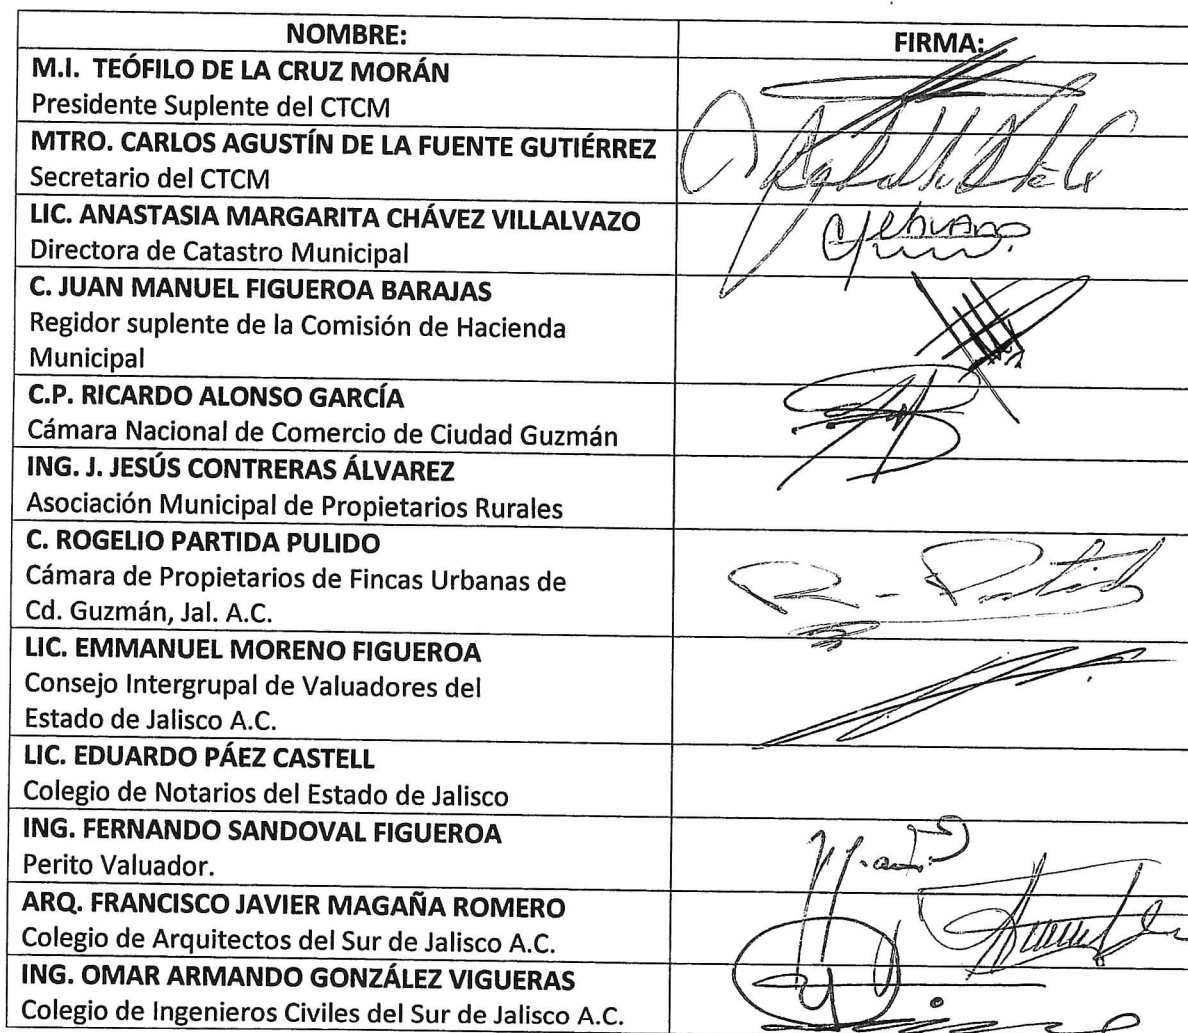 NOMBRE:
FIRMA:
M.I. TEÓFILO DE LA CRUZ MORÁN
Presidente Suplente del CTCM
MTRO. CARLOS AGUSTÍN DE LA FUENTE GUTIÉRREZ
Secretario del CTCM
LIC. ANASTASIA MARGARITA CHÁVEZ VILLALVAZO
Directora de Catastro Municipal
C. JUAN MANUEL FIGUEROA BARAJAS
Regidor suplente de la Comisión de Hacienda
Municipal
C.P. RICARDO ALONSO GARCÍA
Cámara Nacional de Comercio de Ciudad Guzmán
ING. J. JESÚS CONTRERAS ÁLVAREZ
Asociación Municipal de Propietarios Rurales
C. ROGELIO PARTIDA PULIDO
Cámara de Propietarios de Fincas Urbanas de
Cd. Guzmán, Jal. A.C.
R. Partida
LIC. EMMANUEL MORENO FIGUEROA
Consejo Intergrupal de Valuadores del
Estado de Jalisco A.C.
LIC. EDUARDO PÁEZ CASTELL
Colegio de Notarios del Estado de Jalisco
ING. FERNANDO SANDOVAL FIGUEROA
Perito Valuador.
ARQ. FRANCISCO JAVIER MAGAÑA ROMERO
Colegio de Arquitectos del Sur de Jalisco A.C.
ING. OMAR ARMANDO GONZÁLEZ VIGUERAS
Colegio de Ingenieros Civiles del Sur de Jalisco A.C.